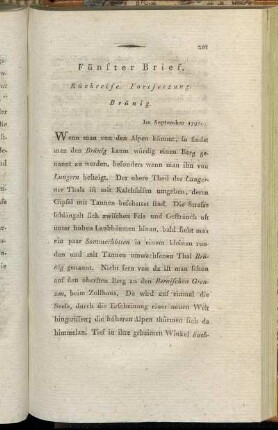 201
Fünfter Brief.
Rückreise. Fortsetzung.
Brünig.
Im September 179
Wenn man von den Alpen kömmt, so findet
man den Brünig kaum würdig einen Berg ge-
nannt zu werden, besonders wenn man ihn von
Lungern besteigt. Der obere Theil des Lunger-
ner Thals ist mit Kalchfelsen umgeben, deren
Gipfel mit Tannen beschattet sind. Die Strasse
schlängelt sich zwischen Fels und Gesträuch oft
unter hohen Laubbäumen hinan, bald sieht man
ein paar Sommerhütten in einem kleinen run-
den und mit Tannen umwachsenen Thal Brü-
nig genannt. Nicht fern von da ist man schon
auf dem obersten Berg an den Bernischen Gren-
zen, beym Zollhaus. Da wird auf einmal die
Seele, durch die Erscheinung einer neuen Welt
hingerissen; die höheren Alpen thürmen sich da
himmelan. Tief in ihre geheimen Winkel